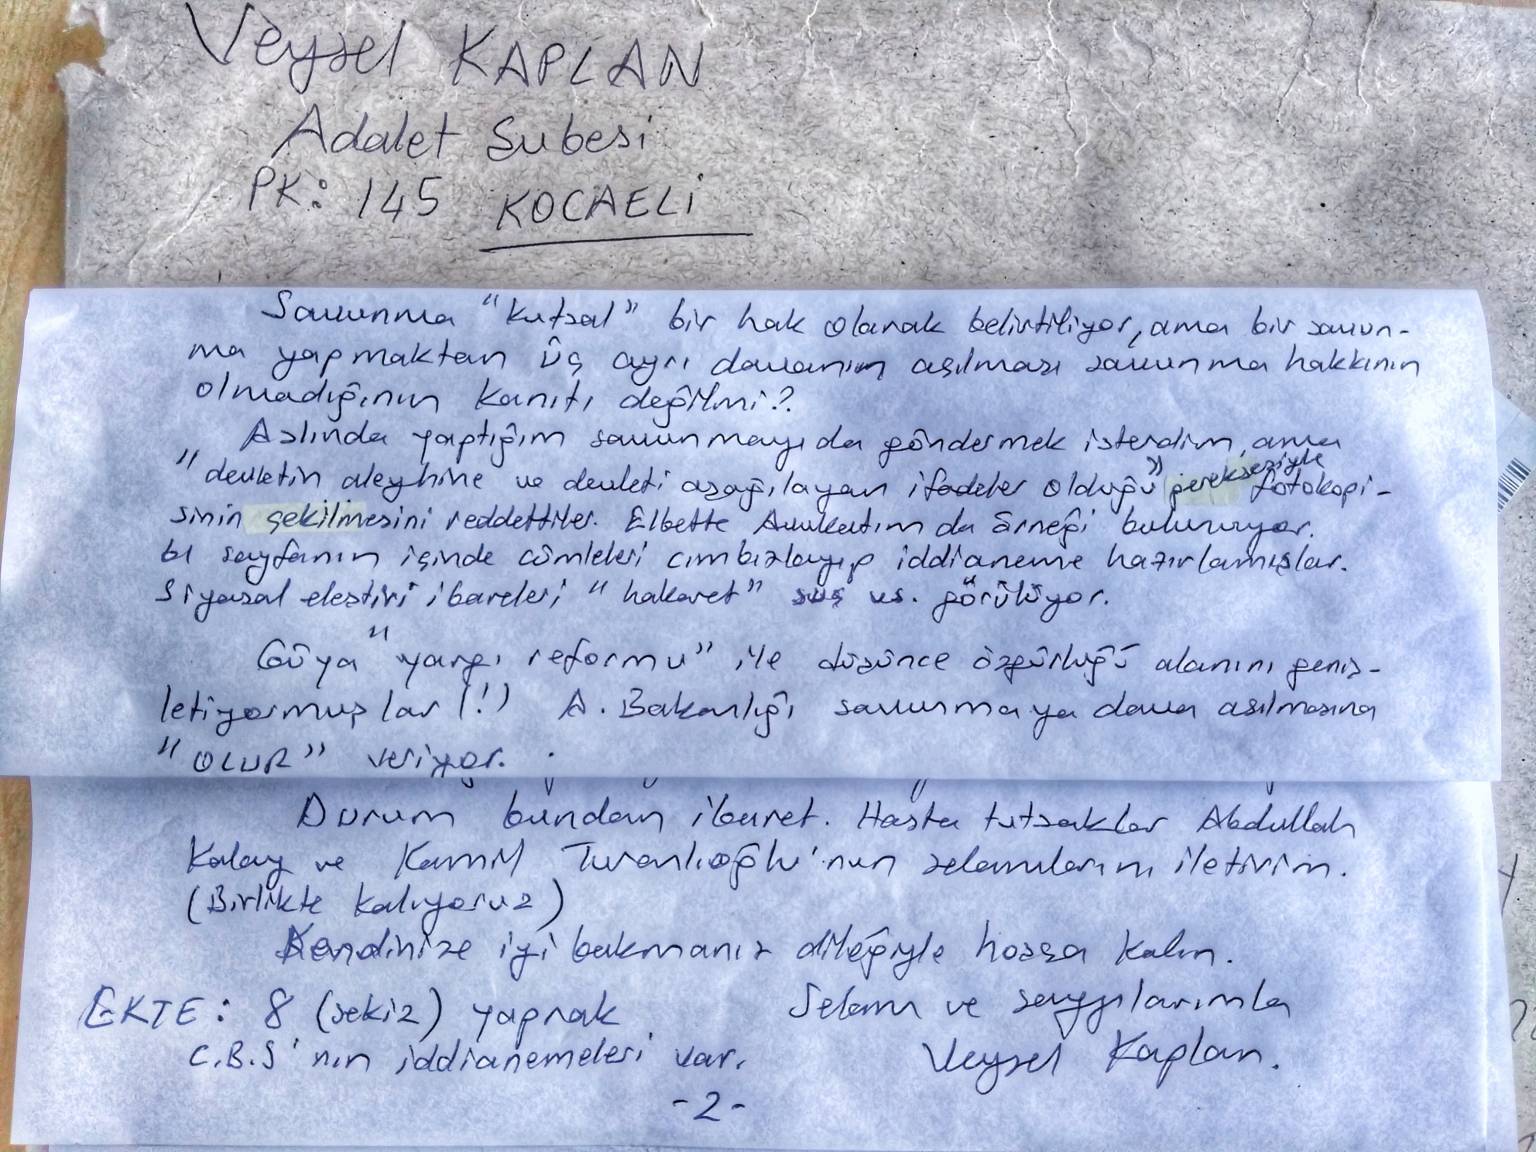 Veysel KAPLAN
Adalet Şubesi
PK: 145 KOCAELİ
Savunma "kutsal" bir hak olarak belirtiliyor, ama bir savun-
ma yapmaktan üç ayrı davanın açılması savunma hakkının
olmadığının kanıtı değilmi?
Aslında yaptığım savunmayı da göndermek isterdim, ama
"devletin aleyhine ve devleti aşağılayan ifadeler olduğu" gerekçesiyle fotokopi-
sinin çekilmesini reddettiler. Elbette Avukatım da örneği bulunuyor.
sayfanın içinde cümleleri cımbızlayıp iddianeme hazırlamışlar.
Siyasal eleştiri ibareleri "hakaret" suç vs. görülüyor.
Gûya "yargı reformu" ile düşünce özgürlüğü alanını geniş-
letiyormuşlar (!) A. Bakanlığı savunmaya dava açılmasına
"OLUR" veriyor.
Durum bundan ibaret. Hasta tutsaklar Abdullah
Kalay ve Kamil Turanlıoğlu'nun selamlarını iletirim.
(Birlikte kalıyoruz)
Kendinize iyi bakmanız dileğiyle hoşça kalın.
EKTE: 8 (sekiz) yaprak Selam ve saygılarımla
C.B.S'nın iddianemeleri var. Veysel Kaplan.
-2-